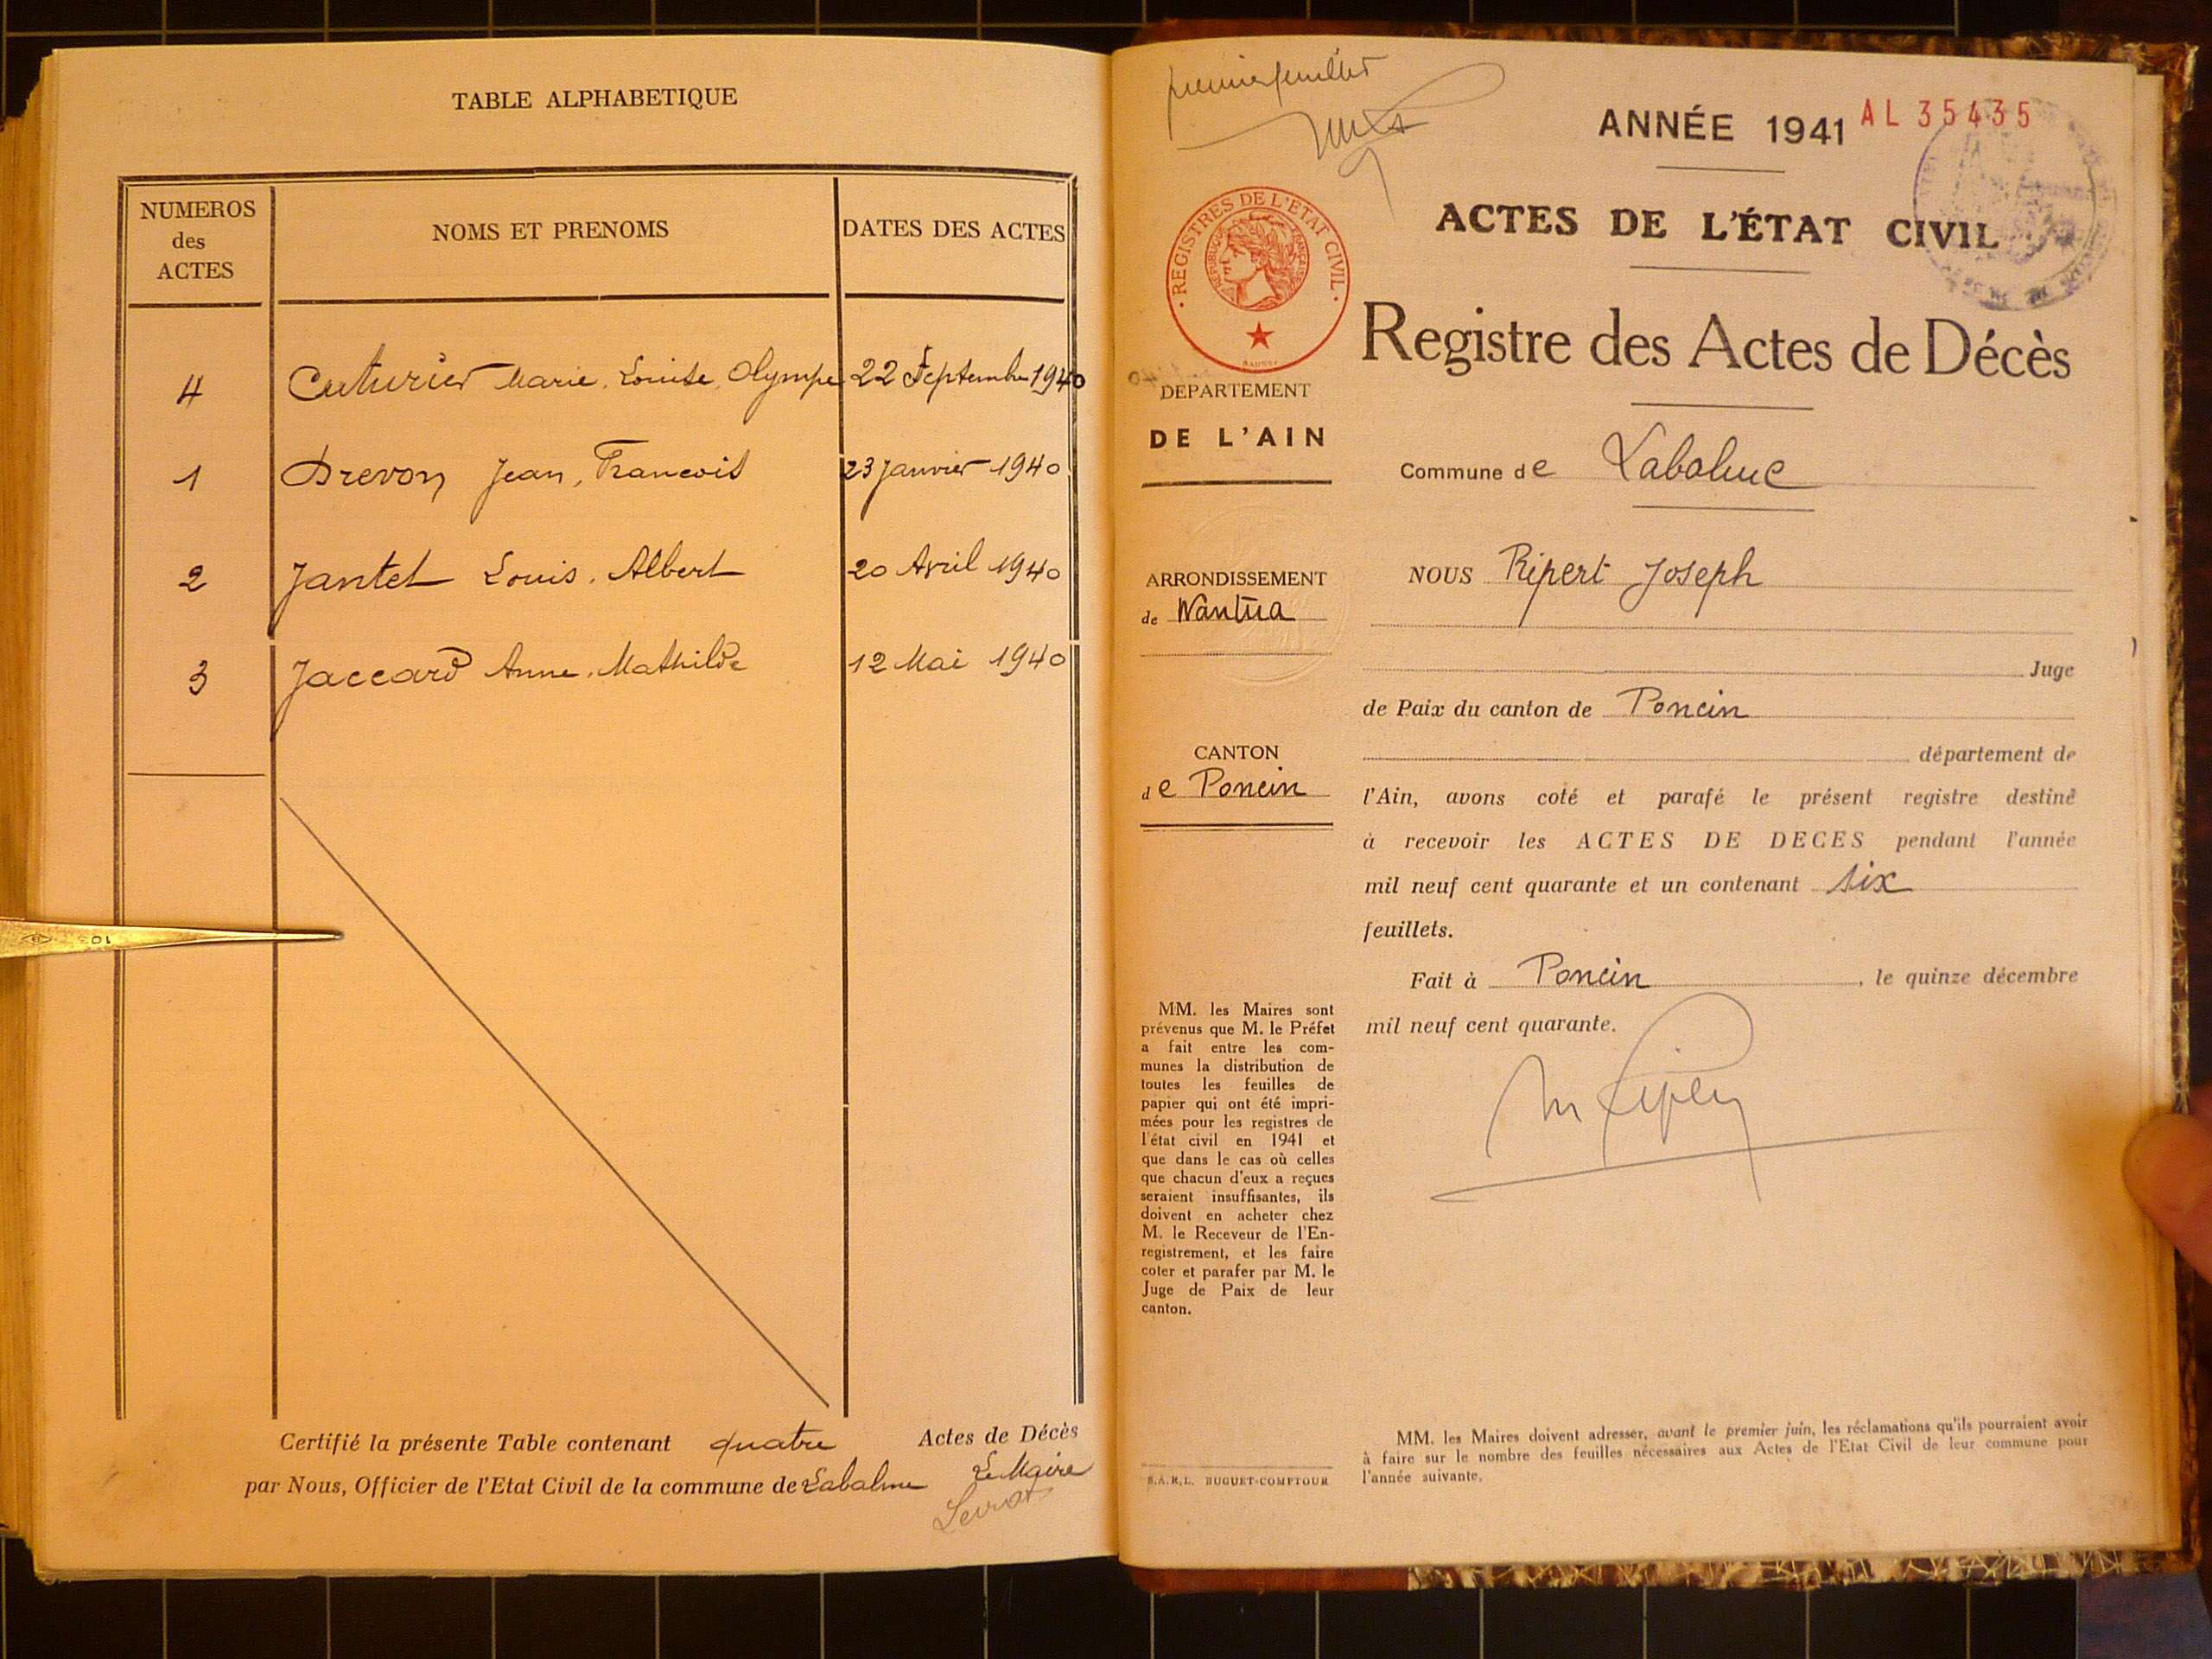 TABLE ALPHABETIQUE
NUMEROS
des
ACTES
NOMS ET PRENOMS
DATES DES ACTES
4 Cuturier Marie, Louise, Olympe 22 Septembre 1940
1 Drevon Jean, Francois 23 Janvier 1940
2 Jantet Louis, Albert 20 Avril 1940
3 Jaccard Anne, Mathilde 12 Mai 1940
Certifié la présente Table contenant quatre Actes de Décès
par Nous, Officier de l'Etat Civil de la commune de Labalme Le Maire
103
premier feuillet
ANNÉE 1941 AL 35435
ACTES DE L'ÉTAT CIVIL
· REGISTRES DE L'ÉTAT CIVIL ·
REPUBLIQUE FRANÇAISE
Registre des Actes de Décès
DEPARTEMENT
DE L'AIN
Commune de Labalme
ARRONDISSEMENT
de Nantua
CANTON
de Poncin
NOUS Ripert Joseph
Juge
de Paix du canton de Poncin
département de
l'Ain, avons coté et parafé le présent registre destiné
à recevoir les ACTES DE DECES pendant l'année
mil neuf cent quarante et un contenant six
feuillets.
Fait à Poncin, le quinze décembre
mil neuf cent quarante.
MM. les Maires sont
prévenus que M. le Préfet
a fait entre les com-
munes la distribution de
toutes les feuilles de
papier qui ont été impri-
mées pour les registres de
l'état civil en 1941 et
que dans le cas où celles
que chacun d'eux a reçues
seraient insuffisantes, ils
doivent en acheter chez
M. le Receveur de l'En-
registrement, et les faire
coter et parafer par M. le
Juge de Paix de leur
canton.
S.A.R.L. BUGUET-COMPTOUR
MM. les Maires doivent adresser, avant le premier juin, les réclamations qu'ils pourraient avoir
à faire sur le nombre des feuilles nécessaires aux Actes de l'Etat Civil de leur commune pour
l'année suivante.